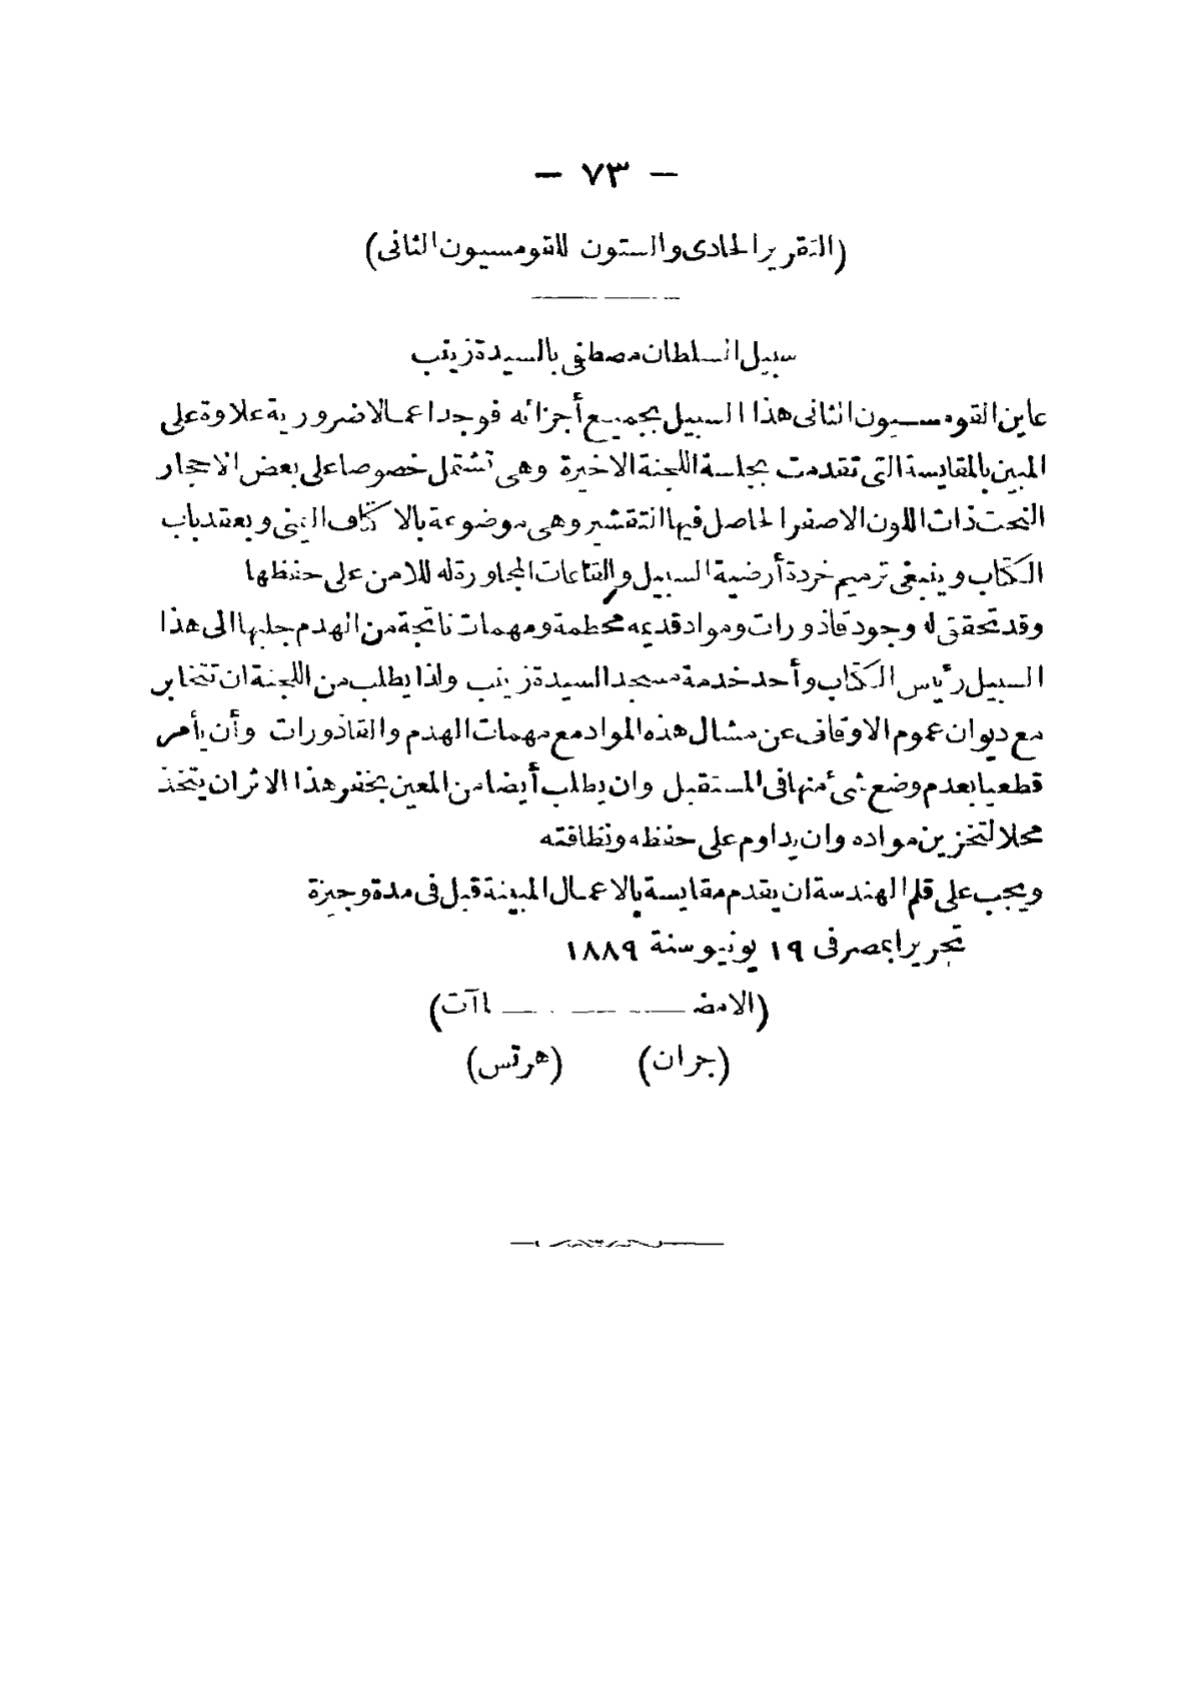 — ٧٣ —
(التقرير الحادى والستون للقومسيون الثانى)
سبيل السلطان مصطفى بالسيدة زينب
عاين القومسيون الثانى هذا السبيل بجميع أجزائه فوجد اعمالا ضرورية علاوة على
المبين بالمقايسة التى تقدمت بجلسة اللجنة الاخيرة وهى تشتمل خصوصا على بعض الاحجار
النحت ذات اللون الاصفر الحاصل فيها التقشير وهى موضوعة بالاكتاف اليمنى وبعقد باب
الكتاب وينبغى ترميم خردة أرضية السبيل والقاعات المجاورة له للامن على حفظها
وقد تحقق له وجود قاذورات ومواد قديمه محطمة ومهمات ناتجة من الهدم جلبها الى هذا
السبيل رئيس الكتاب وأحد خدمة مسجد السيدة زينب ولذا يطلب من اللجنة ان تتخابر
مع ديوان عموم الاوقاف عن مشال هذه المواد مع مهمات الهدم والقاذورات وأن يأمر
قطعيا بعدم وضع شئ منها فى المستقبل وان يطلب أيضا من المعين بخفر هذا الاثر ان يتخذ
محلا لتخزين مواده وان يداوم على حفظه ونظافته
ويجب على قلم الهندسة ان يقدم مقايسة بالاعمال المبينة قبل فى مدة وجيزة
تحريرا بمصر فى ١٩ يونيو سنة ١٨٨٩
(الامضاآت)
(جران) (هرتس)